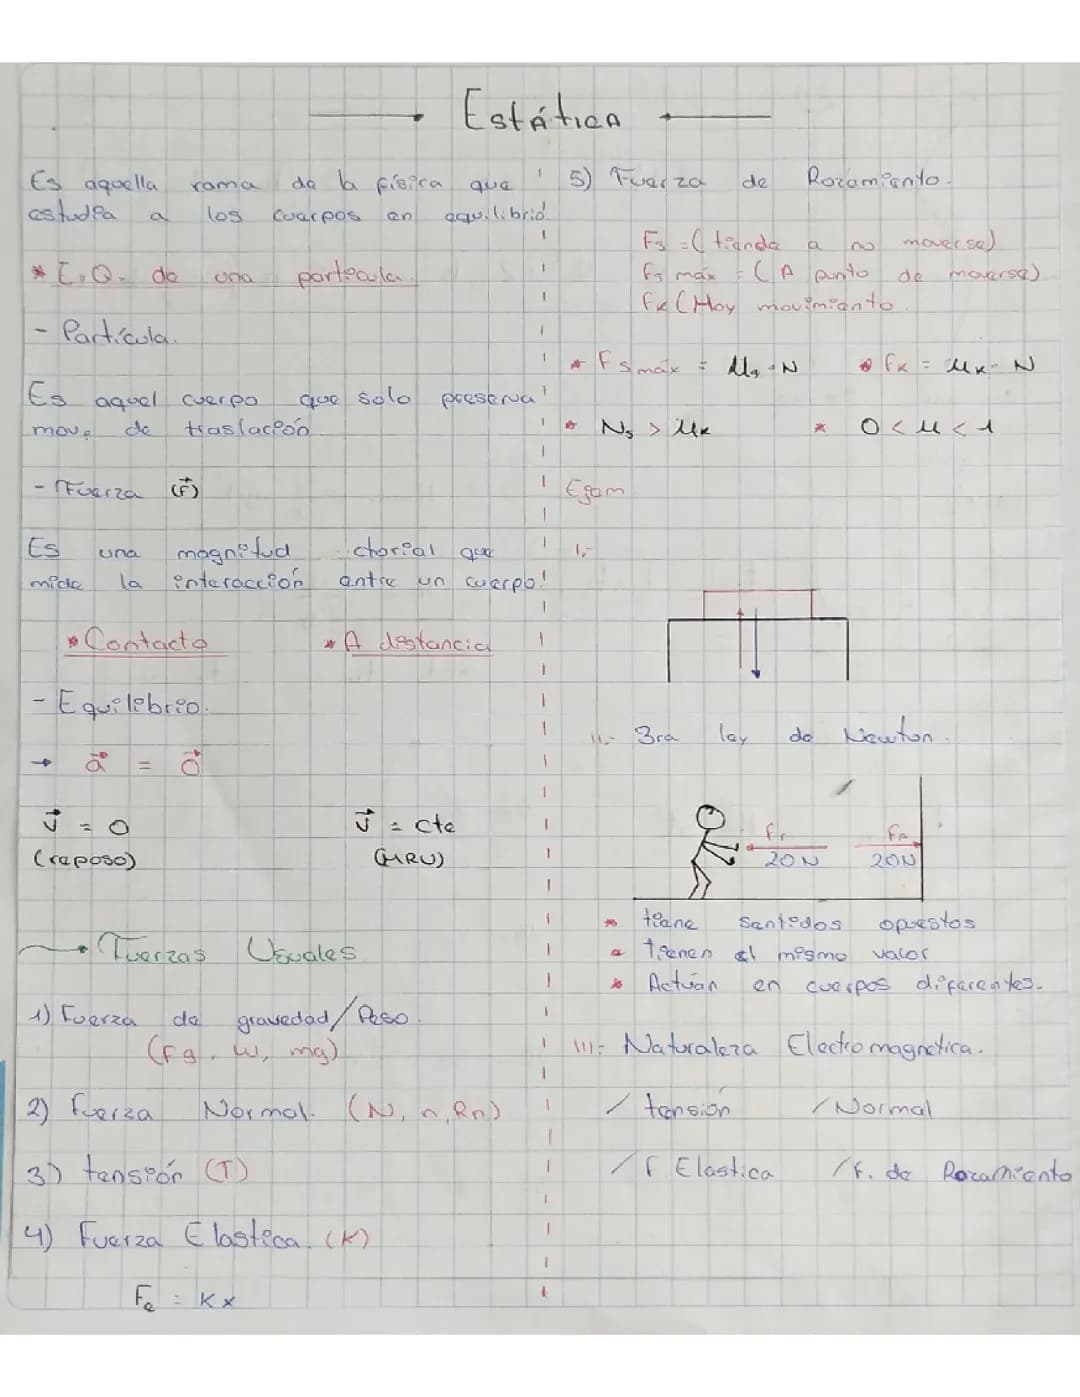 Estática
Es aquella rama de la física que
estudia a los cuerpos en equilibrio.
* E.Q. de una partícula.
- Partícula.
Es aquel cuerpo que solo preserva
mov. de traslación.
- Fuerza (F⃗)
Es una magnitud ctorial que
mide la interacción entre un cuerpo.
* Contacto * A distancia
- Equilibrio.
→ a⃗ = 0⃗
v⃗ = 0 v⃗ = cte
(reposo) (MRU)
Fuerzas Usuales
1) Fuerza de gravedad/Peso.
(Fg, W, mg)
2) Fuerza Normal. (N, n, Rn)
3) tensión (T)
4) Fuerza Elastica. (K)
Fe = Kx
5) Fuerza de Rozamiento.
Fs = ( tiende a no moverse)
Fs máx = ( A punto de moverse)
Fk (Hay movimiento.
* Fs máx = μs · N * fk = μk · N
* Ns > μk * 0 < μ < 1
Ejem
I.-
II.- 3ra ley de Newton.
20N 20N
* tiene sentidos opuestos
* tienen el mismo valor
* Actúan en cuerpos diferentes.
III.- Naturaleza Electromagnetica.
/ tensión / Normal
/ F Elastica / F. de Rozamiento